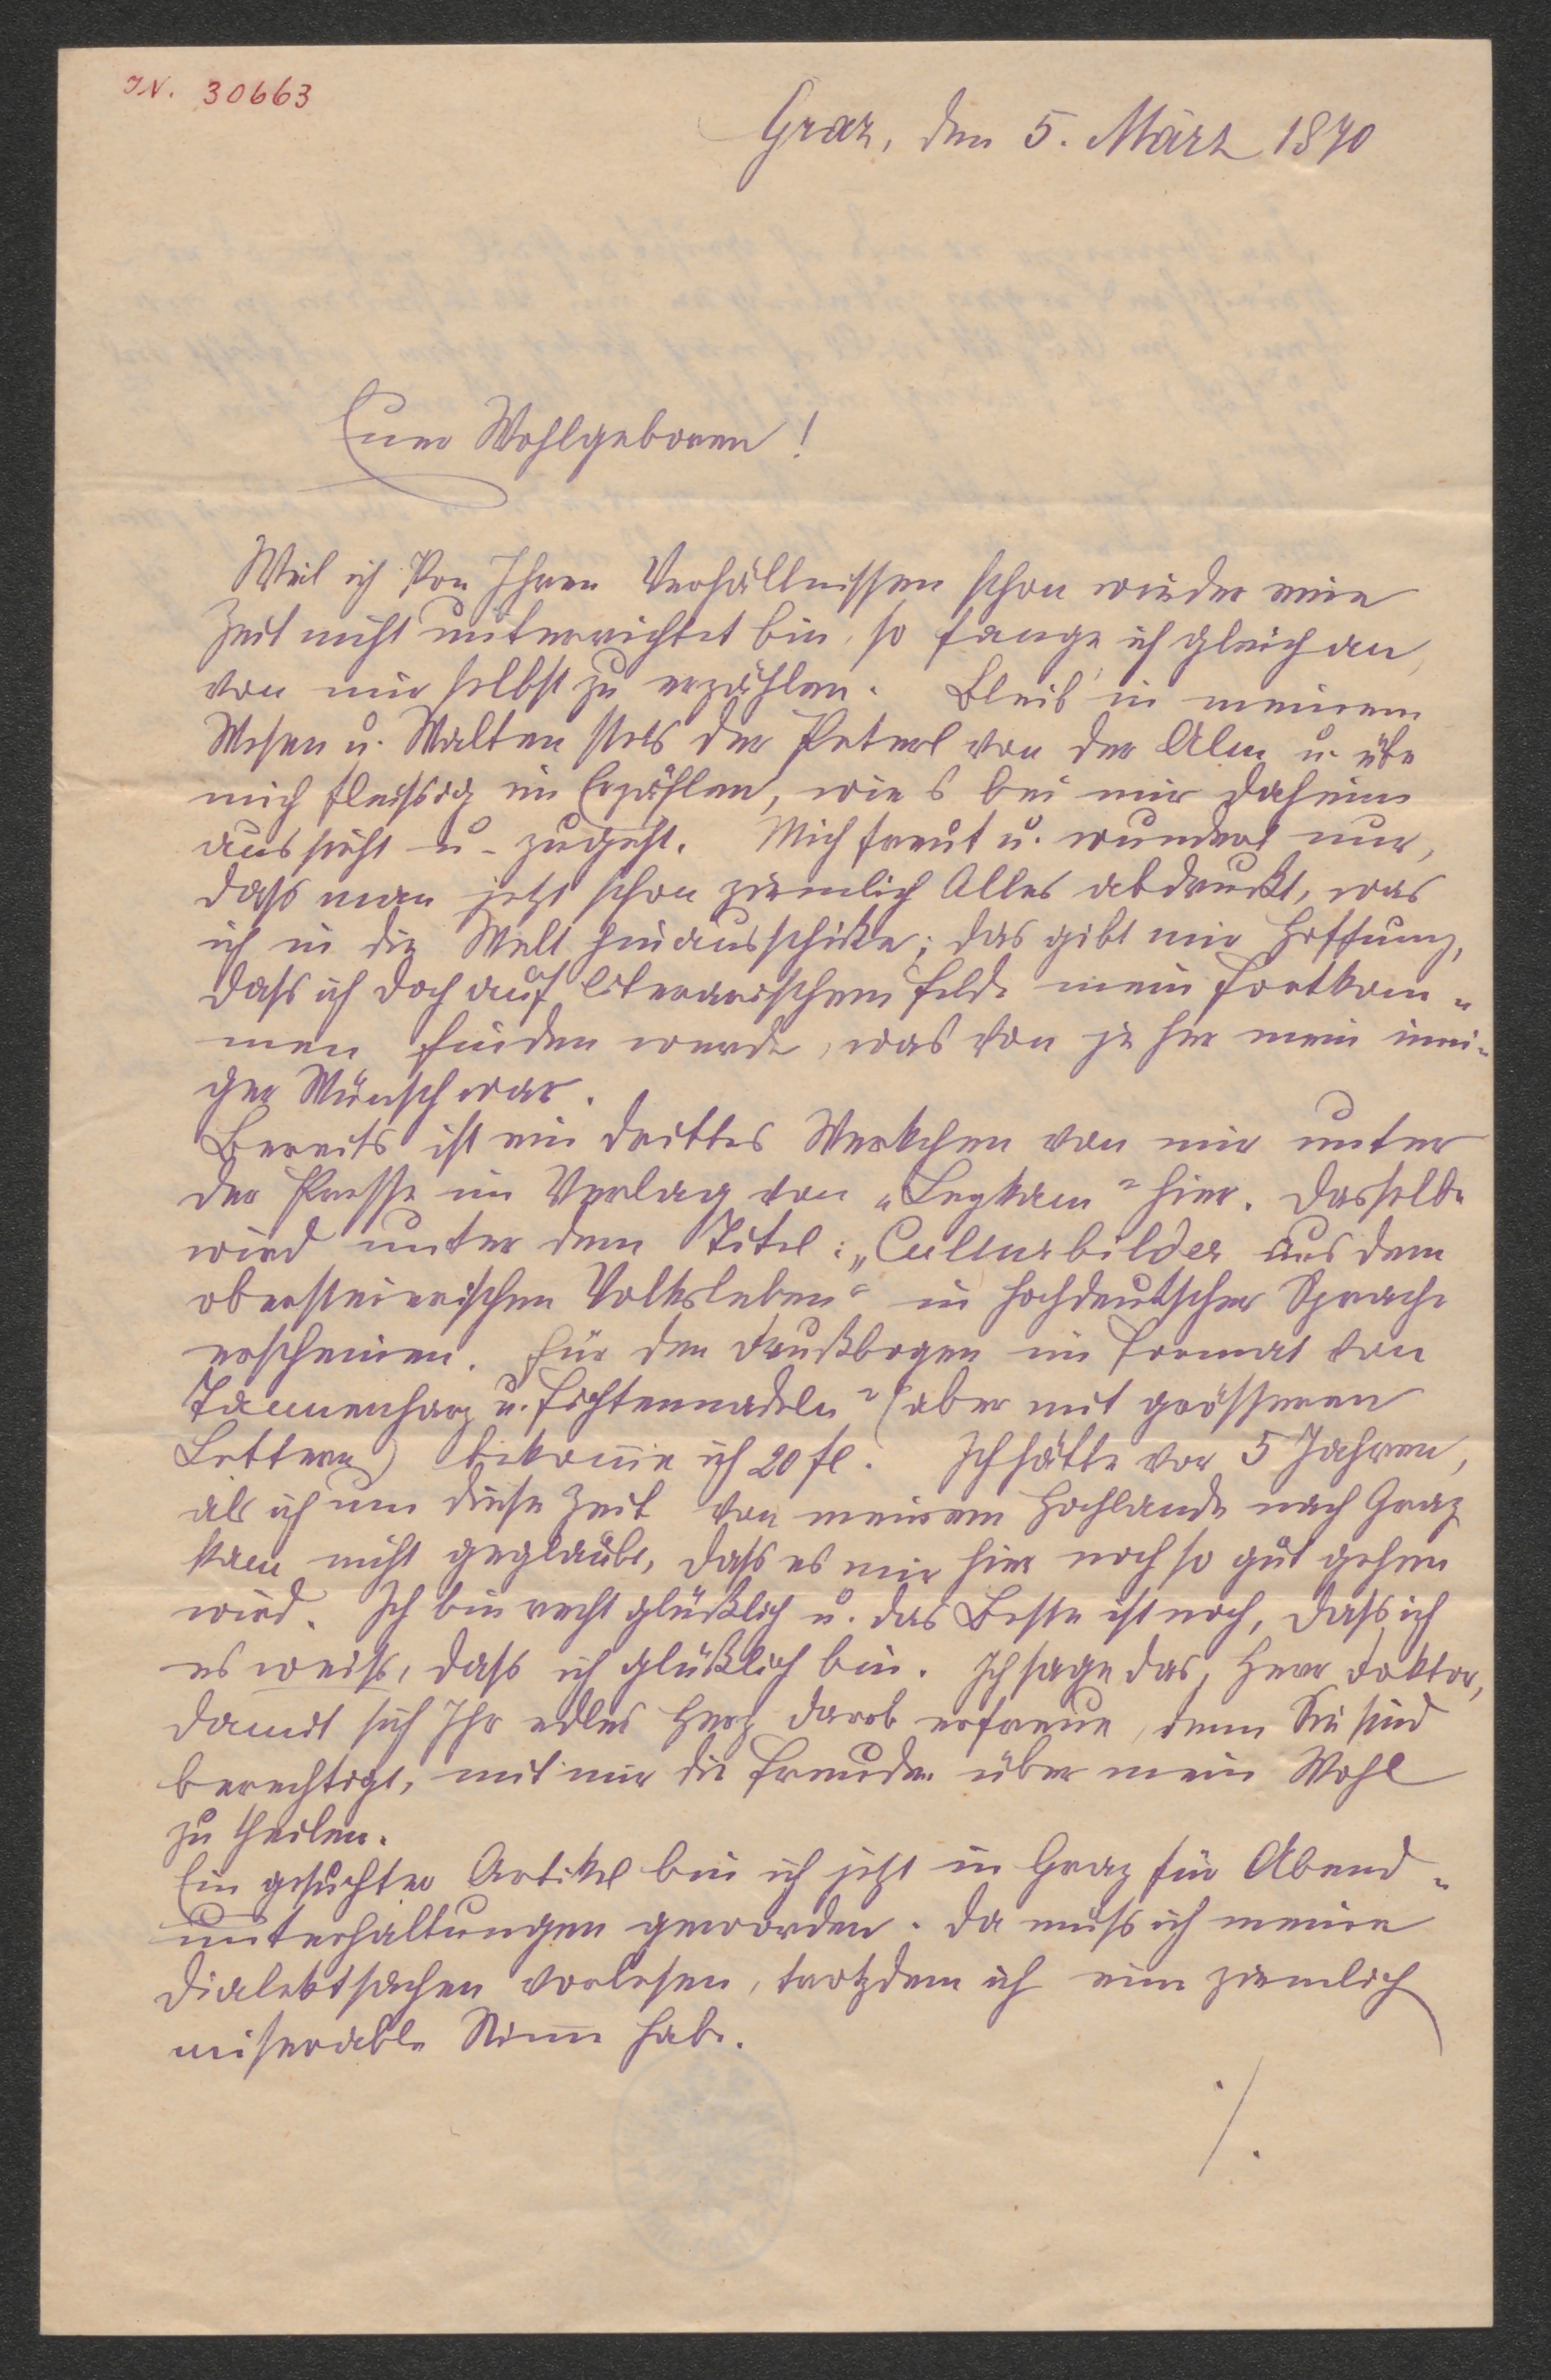 IN. 30663
Graz, den 5. März 1870
Euer Wohlgeboren!
Weil ich von Ihren Verhältnissen schon wieder eine
Zeit nicht unterrichtet bin, so fange ich gleich an,
von mir selbst zu erzählen. Bleib in meinem
Wesen u. Walten stets der Peterl von der Alm u. übe
mich fleissig im Erzählen, wie's bei mir daheim
aussieht u. zugeht. Mich freut u. wundert nur,
dass man jetzt schon ziemlich Alles abdruckt, was
ich in die Welt hinausschicke; das gibt mir Hoffnung,
dass ich doch auf literarischem Felde mein Fortkom-
men finden werde, was von je her mein inni-
ger Wunsch war.
Bereits ist ein drittes Werkchen von mir unter
der Presse im Verlag von „Leykam" hier. Dasselbe
wird unter dem Titel: „Culturbilder aus dem
obersteierischen Volksleben" in hochdeutscher Sprache
erscheinen. Für den Druckbogen im Format von
Tannenharz u. Fichtennadeln" (aber mit grösseren
Lettern) bekomme ich 20 fl. Ich hätte vor 5 Jahren,
als ich um diese Zeit von meinem Hochlande nach Graz
kam nicht geglaubt, dass es mir hier noch so gut gehen
wird. Ich bin recht glücklich u. das Beste ist noch, dass ich
es weiss, dass ich glücklich bin. Ich sage das, Herr Doktor,
damit sich Ihr edles Herz darob erfreue, denn Sie sind
berechtigt, mit mir die Freude über mein Wohl
zu theilen.
Ein gesuchter Artikel bin ich jetzt in Graz für Abend-
unterhaltungen geworden. Da muss ich meine
Dialektsachen vorlesen, trotzdem ich eine ziemlich
miserable Stimme habe.
./.